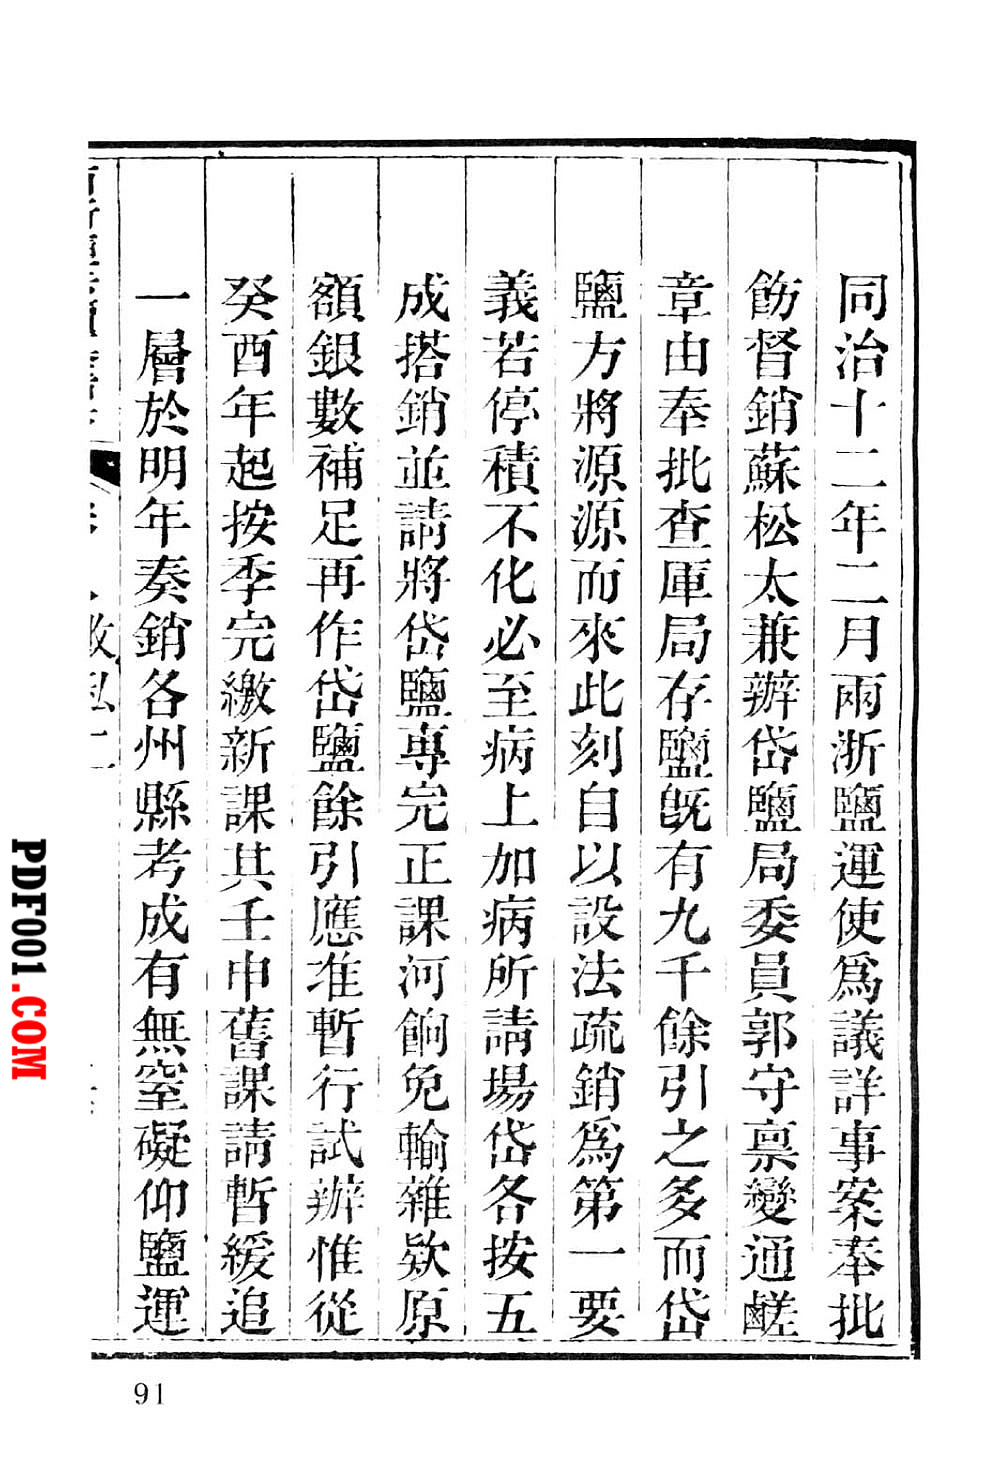 同治十二年二月兩浙鹽運使爲議詳事案奉批
飭督銷蘇松太兼辦岱鹽局委員郭守禀變通鹺
章由奉批查庫局存鹽旣有九千餘引之多而岱
鹽方將源源而來此刻自以設法疏銷爲第一要
義若停積不化必至病上加病所請場岱各按五
成搭銷並請將岱鹽專完正課河餉免輸雜欵原
額銀數補足再作岱鹽餘引應准暫行試辦惟從
癸酉年起按季完繳新課其壬申舊課請暫緩追
一層於明年奏銷各州縣考成有無窒礙仰鹽運
91
PDF001.COM